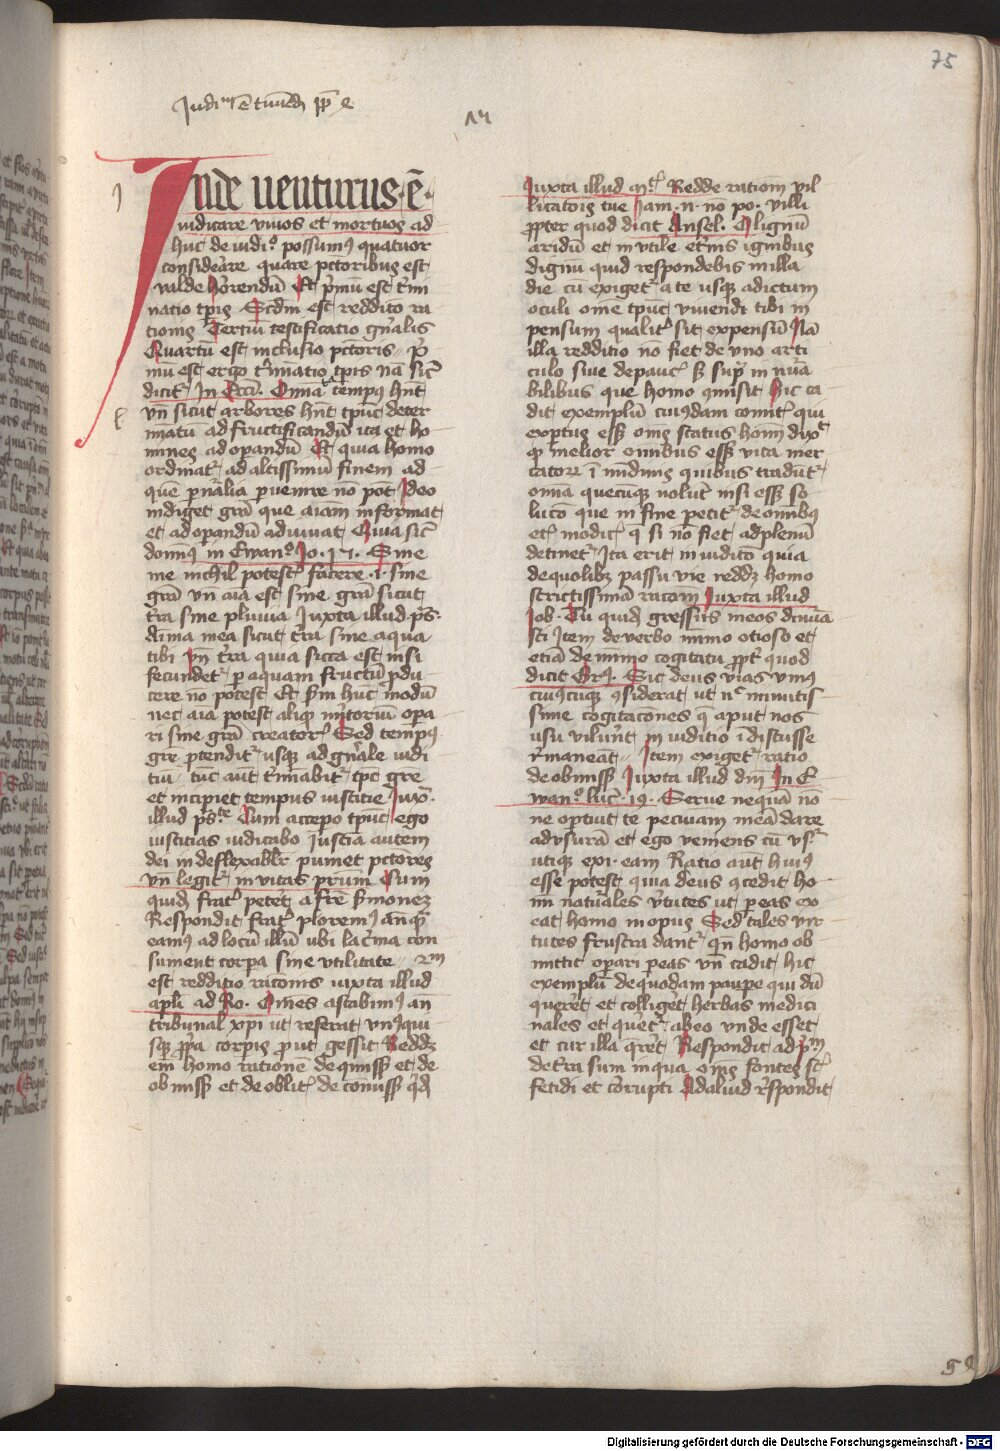 75
Inde uenturus ē
iudicare viuos et mortuos ad
huc de iudiº possumꝰ quatuor
considerare quare pctoribus est
valde horrendū Et pͥmū est tͥmi
natio tpis Scdm est redditio ra
tionis Tertiū testificatio gnalis
Quartū est inclusio pctoris pͥ
mū est ergo tͥminatio tpis nā sic̄
dicitͬ In Ecci. Omīa tempus hn̄t
vn̄ sicut arbores hn̄t tpus deter
minatū ad fructificandū ita et ho
mines ad operandū Et quia homo
ordinatͬ ad altissimū finem ad
quē per nālia puenire nō pōt Ideo
indiget grā que aīam informat
et ad operandū adiuuat Quia sic̄
dominꝰ in Ewanº Jo. 15. Sine
me nichil potestͥ facere .i. sine
grā vn̄ aīa est sine grā sicut
terra sine pluuia Juxta illud ps.
Aīma mea sicut terra sine aqua
tibi vn̄ terra quia sicca est nisi
fecundetͬ per aquam fructū pdu
cere nō potest Et scdm hūc modū
nec aīa potest aliqͥ meritoriū opera
ri sine grā creatorͥ Sed tempꝰ
grē ptenditͬ usqꝫ ad gnrāle iudi
tiū tūc aut tͥminabitͬ tpꝰ grē
et incipiet tempus iustitie Juxͣ
illud ps. Cum accepero tpus ego
iustitias iudicabo Justicia autem
dei indeflexabilͥr puniet pctores
vn̄ legitͬ in vitas patrum Cum
quidā fratͥ peteret a fratre sermones
Respondit fratͥ ploremꝰ anteqͣ
eamꝰ ad locū illū ubi lacrima con
sument corpora sine vtilitate 2m
est redditio racionis iuxta illud
apli ad Ro. Omnes astabimꝰ an
tribunal xpi ut referat vnꝰqui
sqꝫ ppͥa corporis put gessit Reddet
enim homo rationē de omissis et de
ob missis et de oblitͥ de comissis qd
Juxta illud mt. Redde rationem vil
licatiois tue Jam .n. nō po. villi
ppter quod dicit Ansel. O lignū
aridū et inutile eternis ignibus
dignū quid respondebis in illa
die cū exigetͬ a te usqꝫ ad ictum
oculi omē tpus viuendi tibi in
pensum qualitͥ sit expensū Nā
illa redditio nō fiet de vno arti
culo siue de paucͥ sed supͥ innūa
bilibus que homo omisit Hic ca
dit exemplū cuiꝰdam comitͥ qui
exptus esse omīs status homī dixit
qͥ melior omnibus esset vita mer
catorͥ in nūdinis quibus tradūtͬ
omīa quecūqꝫ volunt nisi esset so
lutio que in fine petitͬ de omībꝰ
etͥ modicͥ qͥ si nō fiet ad plenū
detinetͬ Ita erit in iuditio quia
de quolibꝫ passu vie reddet homo
strictissimā racionem Juxta illud
Job. Tu quidē gressus meos dinūera
sti Item de verbo minimo otioso et
etiā de minimo cogitatu pptͥ quod
dicit Gre. Sic deus vias vniꝰ
cuiꝰcūqꝫ ꝯsiderat ut nec minutis
sime cogitacōnes qͥ aput nos
usu viluert in iuditio indiscusse
rͥmaneāt Item exigetͬ ratio
de obmissis Juxta illud dn̄i In E
wanº luc̄. 19. Serue nequā nō
ne optuit te pecuniam meā dare
ad vsurā et ego veniens cū vsͬ
utiqꝫ exi. eam Ratio aut huiꝰ
esse potest quia deus ꝯcedit ho
mi natūales virtutes ut per eas ex
eat homo in opus Sed tales vir
tutes frustra dantͬ qn̄ homo ob
mittit operari per eas vn̄ cadit hic
exemplū de quodam paupe qui dū
quereret et colligeret herbas medici
nales et quereretͬ ab eo vnde esset
et cur illa quereret Respondit ad pͥm
de terra sum in qua omīs fontes sūt
fetidi et corrupti Ad aliud respondit